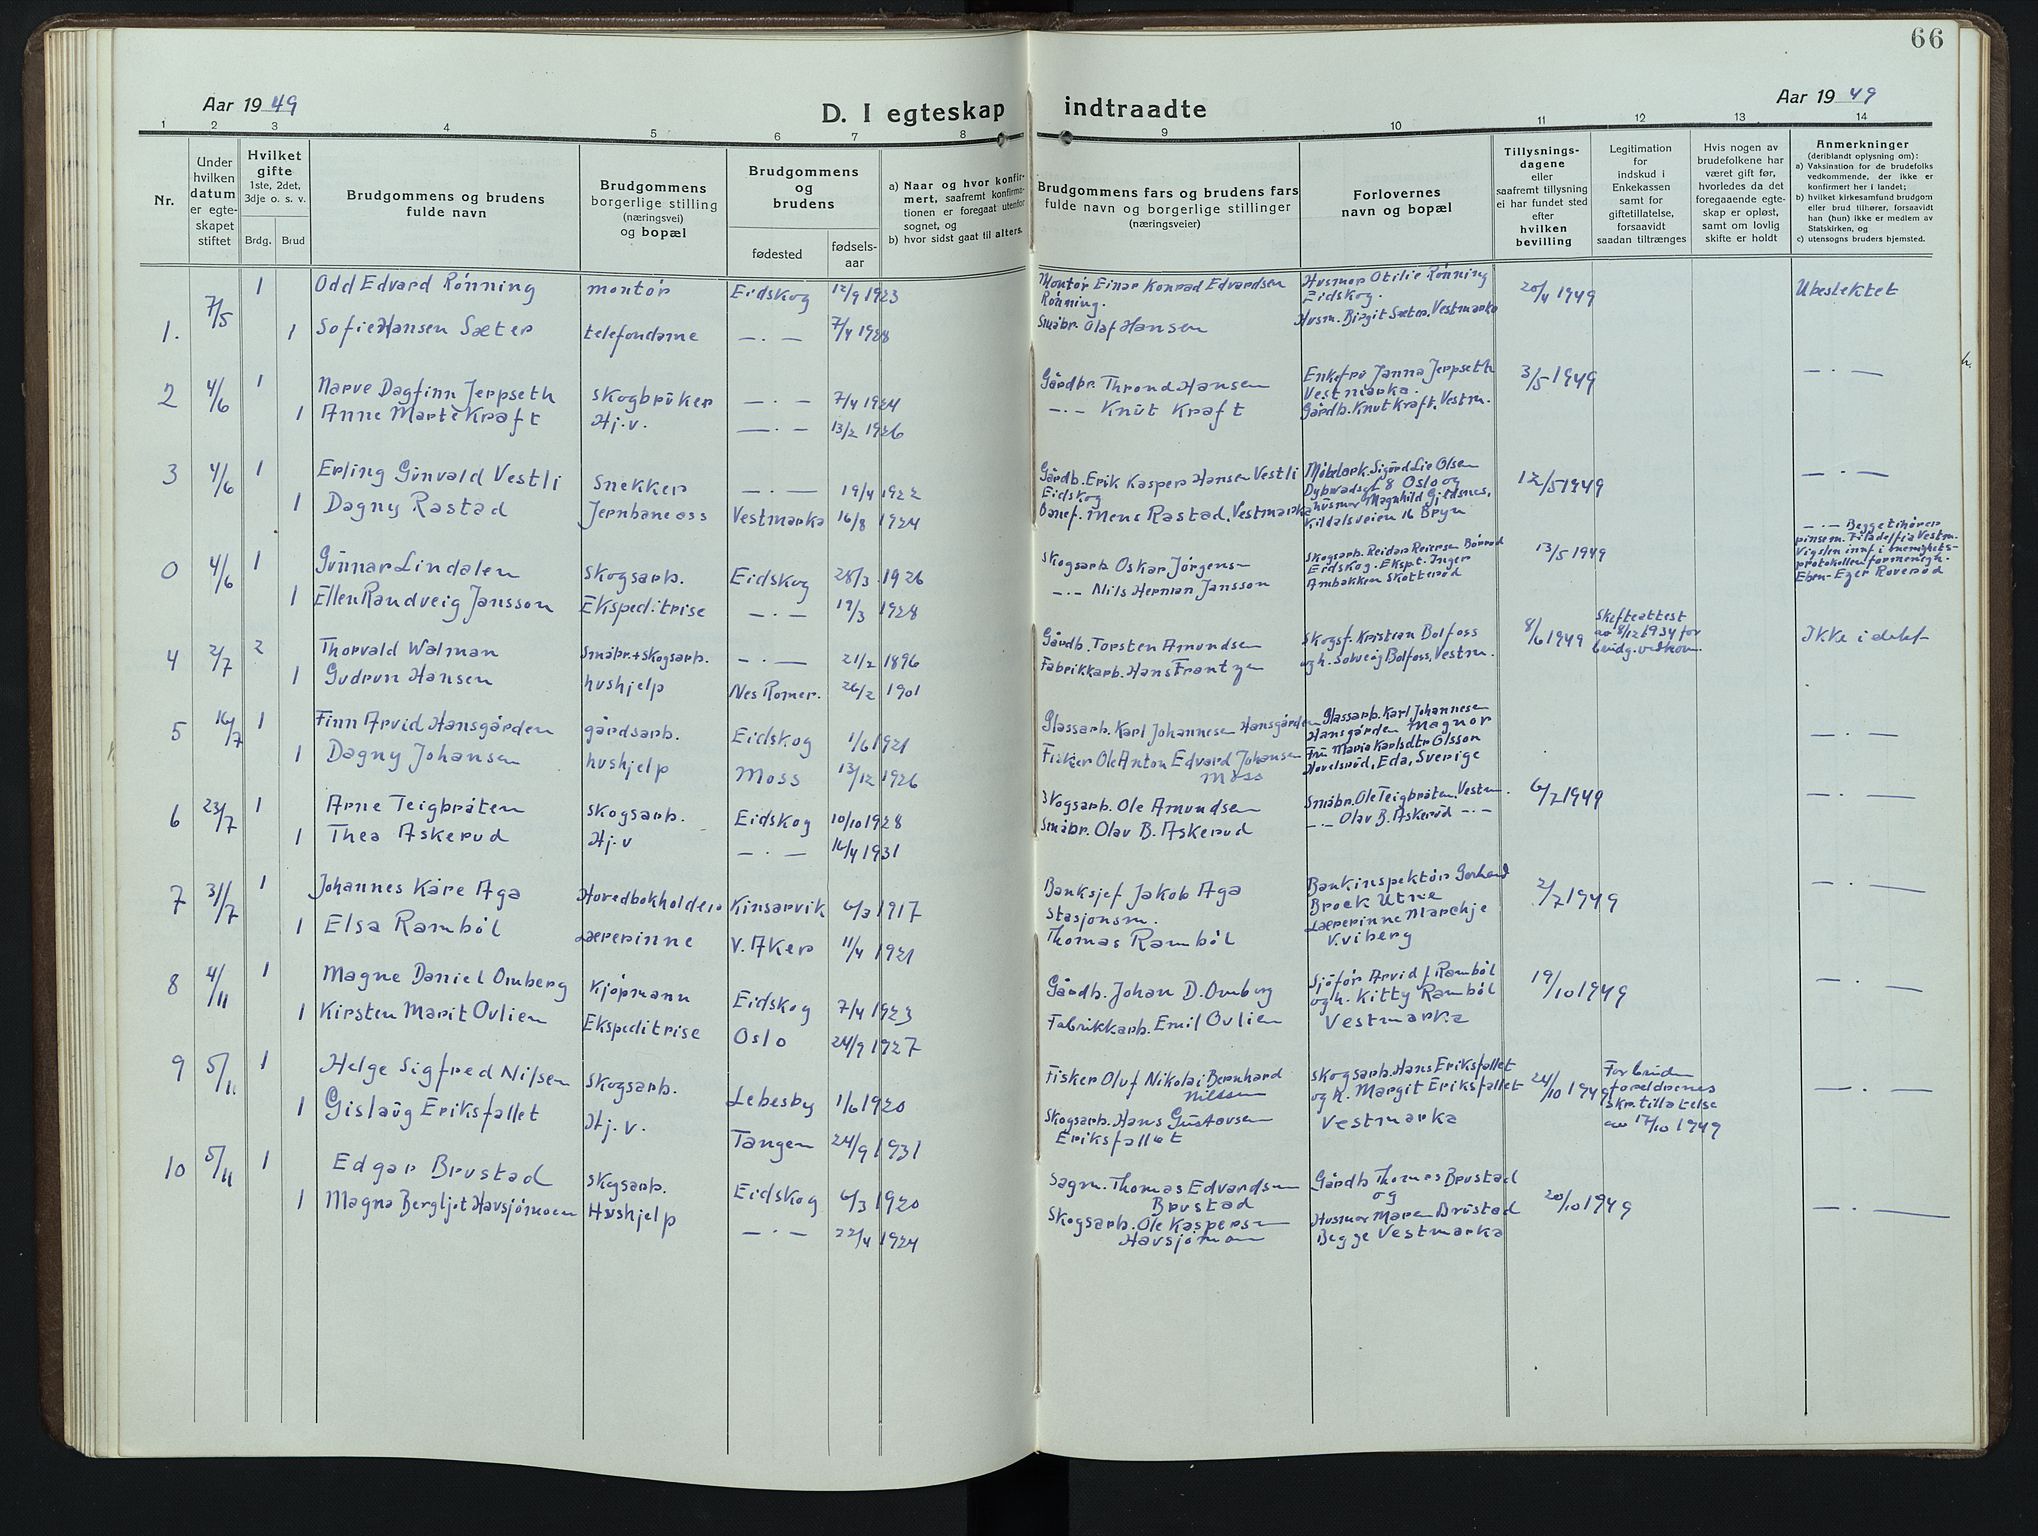 66
Aar 1949
D. I egteskap indtraadte
Aar 1949
1 2 3 4 5 6 7 8 9 10 11 12 13 14
Nr.
Under hvilken datum er egteskapet stiftet
Hvilket gifte 1ste, 2det, 3dje o. s. v.
Brdg. Brud
Brudgommens og brudens fulde navn
Brudgommens borgerlige stilling (næringsvei) og bopæl
Brudgommens og brudens
fødested
fødselsaar
a) Naar og hvor konfirmert, saafremt konfirmationen er foregaat utenfor sognet, og
b) hvor sidst gaat til alters.
Brudgommens fars og brudens fars fulde navn og borgerlige stillinger (næringsveier)
Forlovernes navn og bopæl
Tillysningsdagene eller saafremt tillysning ei har fundet sted efter hvilken bevilling
Legitimation for indskud i Enkekassen samt for giftetillatelse, forsaavidt saadan tiltrænges
Hvis nogen av brudefolkene har været gift før, hvorledes da det foregaaende egteskap er opløst, samt om lovlig skifte er holdt
Anmerkninger (deriblandt oplysning om):
a) Vaksination for de brudefolks vedkommende, der ikke er konfirmert her i landet;
b) hvilket kirkesamfund brudgom eller brud tilhører, forsaavidt han (hun) ikke er medlem av Statskirken, og
c) utensogns bruders hjemsted.
1. 7/5 1 Odd Edvard Rönning montør Eidskog 12/9 1923 Montør Einar Konrad Edvardsen Rönning. Husmor Otilie Rönning Eidskog. 20/4 1949 Ubeslektet
1 Sofie Hansen Sæter telefondame — . — 7/4 1928 Småbr. Olaf Hansen Husm. Birgit Sæter, Vestmarka
2 4/6 1 Narve Dagfinn Jerpseth skogbruker — . — 7/4 1924 Gårdbr. Thrond Hansen Enkefru Janna Jerpseth Vestmarka. 3/5 1949 — . —
1 Anne Marte Kraft Hj.v. — . — 13/2 1926 — . — Knut Kraft Gårdb. Knut Kraft, Vestm.
3 4/6 1 Erling Gunvald Vestli snekker — . — 19/4 1922 Gårdb. Erik Kasper Hansen Vestli Eidskog Möbelark. Sigurd Lie Olsen 8 Oslo og 12/5 1949 — . —
1 Dagny Rastad Jernbaneass Vestmarka 16/8 1924 Banef. Mens Rastad, Vestmarka husmor Magnhild Gjedsnes, Kildalsveien 16 Bryn
0 4/6 1 Gunnar Lindalen skogsarb. Eidskog 28/3 1926 skogsarb Oskar Jörgensen Skogsarb. Reidar Reiersen Eidskog. Ekspt. Inger 13/5 1949 — . — Begge tilhører pinsem. Filadelfia Vestm. Vigslen innf i menighetsprotokollen for menigh. Eben-Ezer Roverud
1 Ellen Randveig Jansson Ekspeditrise — . — 19/3 1928 — . — Nils Herman Jansson Ambakken Skotterud
4 2/7 2 Thorvald Walman Småbr. + skogsarb. — . — 21/2 1896 Gårdb. Torsten Amundsen Skogsf. Kristian Bolfoss 8/6 1949 Skifteattest av 8/12 1934 for brudg. vedkom. Ikke i slekt
1 Gudrun Hansen hushjelp Nes Romer. 26/2 1901 Fabrikkarb. Hans Frantzen og h. Solveig Bolfoss, Vestm.
5 16/7 1 Finn Arvid Hansgården gårdsarb. Eidskog 1/6 1921 Glassarb. Karl Johannesen Hansgården Glassarb. Karl Johannesen Hansgården Magnor — . —
1 Dagny Johansen hushjelp Moss 13/12 1926 Fisker Ole Anton Edvard Johansen Moss Fru Maria Karlsdtr Olsson Hovelsrud, Eda, Sverige
6 23/7 1 Arne Teigbråten skogsarb. Eidskog 10/10 1928 Skogsarb. Ole Amundsen Småbr. Ole Teigbråten, Vestm. 6/7 1949 — . —
1 Thea Askerud Hj.v — . — 16/4 1931 Småbr. Olav B. Askerud — . — Olav B. Askerud — . —
7 31/7 1 Johannes Kåre Aga Hovedbokholder Kinsarvik 6/3 1917 Banksjef Jakob Aga Bankinspektör Gerhard Brock Utne 2/7 1949 — . —
1 Elsa Ramböl Lærerinne V. Aker 11/4 1921 Stasjonsm. Thomas Ramböl Lærerinne Marchje V. Viberg
8 4/11 1 Magne Daniel Omberg kjöpmann Eidskog 7/4 1923 Gårdb. Johan D. Omberg Sjåför Arvid J. Ramböl og h. Kitty Ramböl 19/10 1949 — . —
1 Kirsten Marit Ovlien Ekspeditrise Oslo 24/9 1927 Fabrikkarb. Emil Ovlien Vestmarka
9 5/11 1 Helge Sigfred Nilsen skogsarb. Lebesby 1/6 1920 Fisker Oluf Nikolai Bernhard Nilssen skogsarb. Hans Eriksfallet og h. Margit Eriksfallet 24/10 1949 For bruden foreldrenes skr. tillatelse av 17/10 1949 — . —
1 Gislaug Eriksfallet Hj.v. Tangen 24/9 1931 Skogsarb. Hans Gustavsen Eriksfallet Vestmarka
10 5/11 1 Edgar Brustad skogsarb. Eidskog 6/3 1920 Sagm. Thomas Edvardsen Brustad Gårdb Thomas Brustad og 20/10 1949 — . —
1 Magna Bergljot Havsjömoen Hushjelp — . — 22/4 1924 Skogsarb. Ole Kaspersen Havsjömoen Husmor Maren Brustad Begge Vestmarka